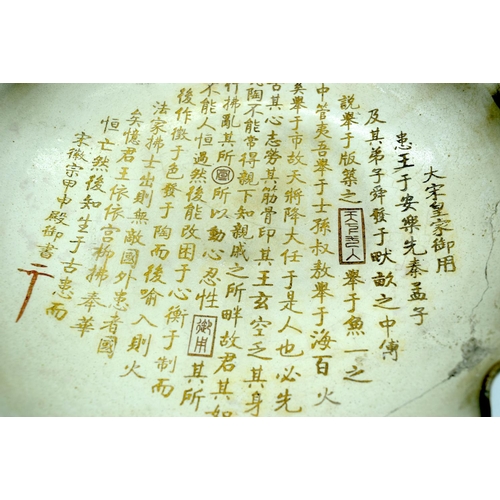 大宋皇家御用
患王于安樂先秦孟子
及其弟子舜發于畎畝之中傅
說舉于版築之天下一人舉于魚一之
中管夷吾舉于士孫叔敖舉于海百火
矣舉于市故天將降大任于是人也必先
苦其心志勞其筋骨印其王玄空乏其身
陶不能常得親下知親戚之所畔故君其如
什拂亂其所所以動心忍性御用其所
不能人恒過然後能改困于心衡于制而
後作徵于色發于陶而後喻入則火
法家拂士出則無敵國外患者國
矣憶君王依依宮柳拂奉華
恒亡然後知生于古患而
宋徽宗甲申殿御書